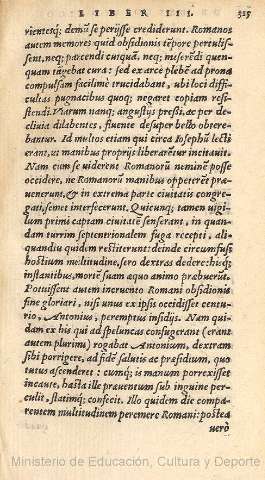 LIBER III. 325
rientesq; demũ se perijsse crediderunt. Romanos
autem memores quid obsidionis tẽpore pertulis-
sent, neq; parcendi cuiquã, neq; miserẽdi quen-
quam tãgebat cura: sed ex arce plebẽ ad prona
compulsam facilimè trucidabant, ubi loci diffi-
cultas pugnacibus quoq; negaret copiam resi-
stendi. Viarum nanq; angustijs pressi, ac per de-
cliuia dilabentes, fluente desuper bello obrue-
bantur. Id multos etiam qui circa Iosephũ lecti
erant, ut manibus proprijs liberarẽtur incitauit.
Nam cum se uiderent Romanorũ neminẽ posse
occidere, ne Romanorũ manibus oppeterẽt præ-
uenerunt, & in extrema parte ciuitatis congre-
gati, semet interfecerunt. Quicunq; tamen uigi-
lum primi captam ciuitatẽ senserant, in quan-
dam turrim septentrionalem fuga recepti, ali-
quandiu quidem restiterunt: deinde circumfusi
hostium multitudine, sero dextras dederẽ hisq́;
instantibus, mortẽ suam æquo animo præbuerũt.
Potuissent autem incruento Romani obsidionis
fine gloriari, nisi unus ex ipsis occidisset centu-
rio, Antonius, peremptus insidijs. Nam qui-
dam ex his qui ad speluncas confugerant (erant
autem plurimi) rogabat Antonium, dextram
sibi porrigere, ad fidẽ salutis ac præsidium, quo
tutus ascenderet: cumq́; is manum porrexisset
incaute, hasta ille præuentum sub inguine per-
culit, statimq́; confecit. Illo quidem die compa-
rentem multitudinem peremere Romani: postea
uerò
Ministerio de Educación, Cultura y Deporte